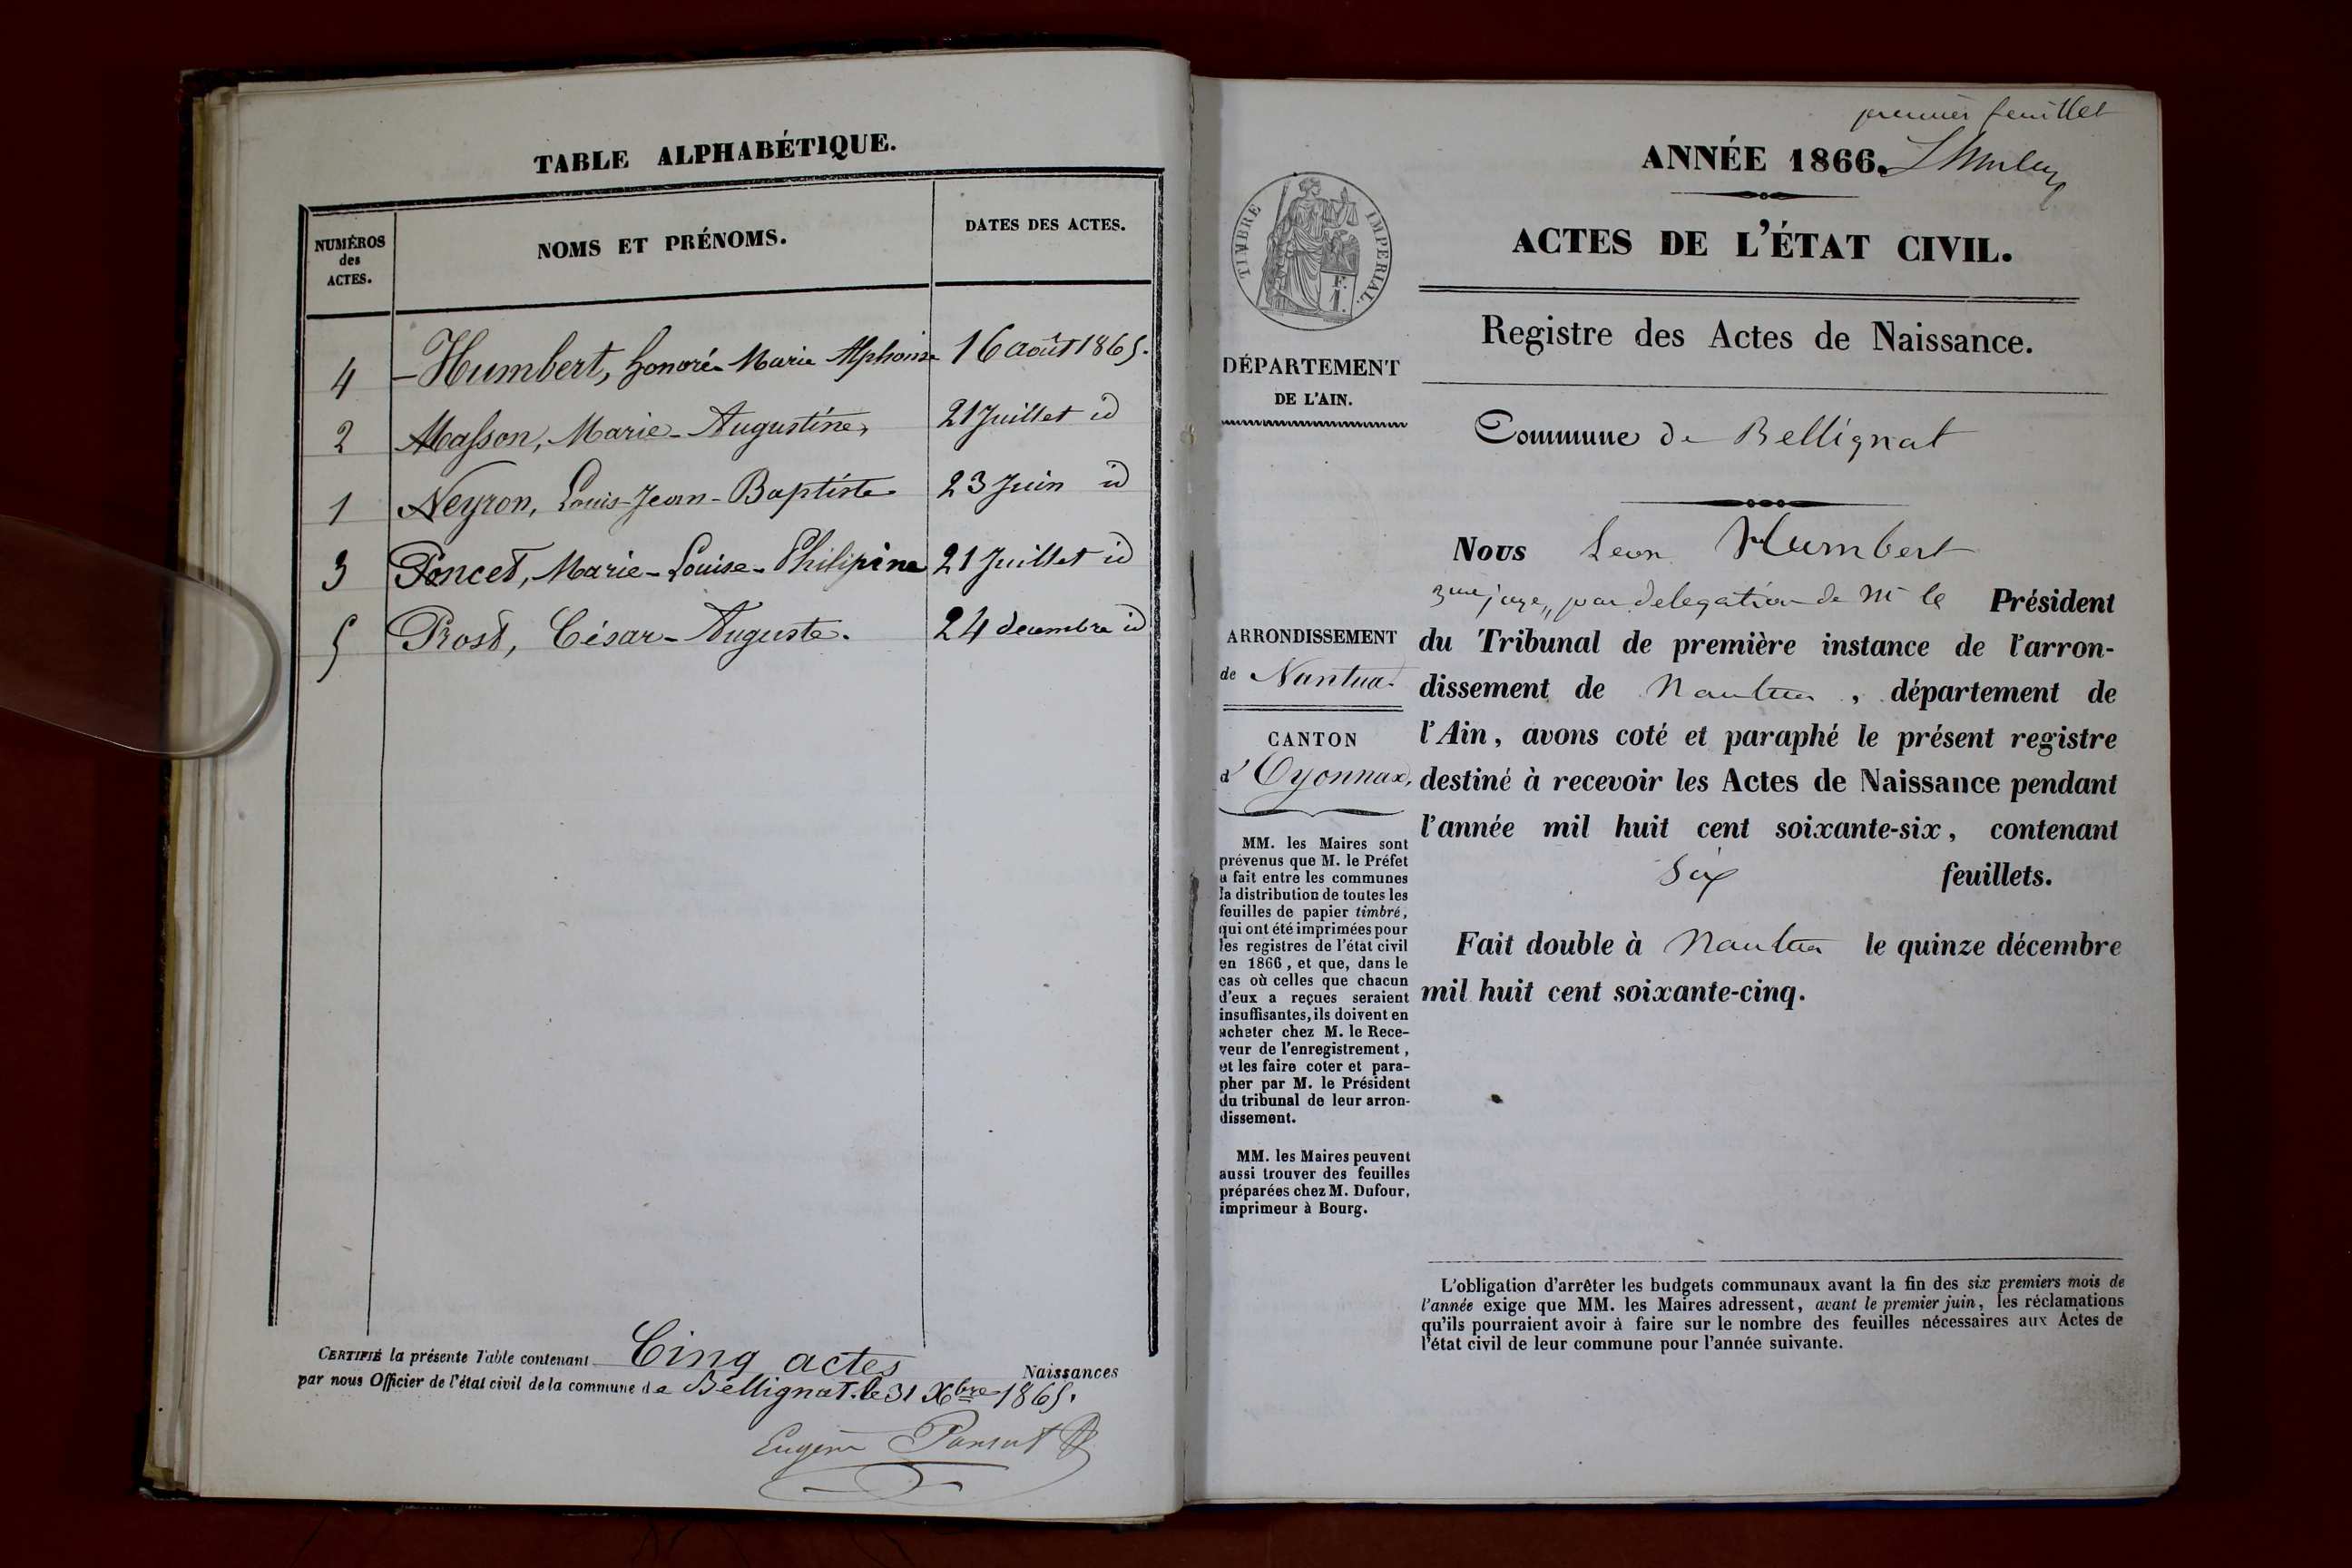 TABLE ALPHABÉTIQUE.
NUMÉROS
des
ACTES.
NOMS ET PRÉNOMS.
DATES DES ACTES.
4 - Humbert, honoré Marie Alphonse 16 août 1865.
2 Masson, Marie-Augustine, 21 Juillet id
1 Neyron, Louis-Jean-Baptiste 23 Juin id
3 Poncet, Marie-Louise-Philipine 21 Juillet id
5 Prost, César-Auguste. 24 decembre id
CERTIFIÉ la présente Table contenant Cinq actes Naissances
par nous Officier de l'état civil de la commune de Bellignat. le 31 Xbre 1865.
Eugène
premier feuillet
ANNÉE 1866.
ACTES DE L'ÉTAT CIVIL.
Registre des Actes de Naissance.
Commune de Bellignat
TIMBRE IMPERIAL.
F.
1.
DÉPARTEMENT
DE L'AIN.
ARRONDISSEMENT
de Nantua.
CANTON
d'Oyonnax,
MM. les Maires sont
prévenus que M. le Préfet
a fait entre les communes
la distribution de toutes les
feuilles de papier timbré,
qui ont été imprimées pour
les registres de l'état civil
en 1866, et que, dans le
cas où celles que chacun
d'eux a reçues seraient
insuffisantes, ils doivent en
acheter chez M. le Rece-
veur de l'enregistrement,
et les faire coter et para-
pher par M. le Président
du tribunal de leur arron-
dissement.
MM. les Maires peuvent
aussi trouver des feuilles
préparées chez M. Dufour,
imprimeur à Bourg.
Nous Leon Humbert
juge, par delegation de Mr le Président
du Tribunal de première instance de l'arron-
dissement de Nantua, département de
l'Ain, avons coté et paraphé le présent registre
destiné à recevoir les Actes de Naissance pendant
l'année mil huit cent soixante-six, contenant
six feuillets.
Fait double à Nantua le quinze décembre
mil huit cent soixante-cinq.
L'obligation d'arrêter les budgets communaux avant la fin des six premiers mois de
l'année exige que MM. les Maires adressent, avant le premier juin, les réclamations
qu'ils pourraient avoir à faire sur le nombre des feuilles nécessaires aux Actes de
l'état civil de leur commune pour l'année suivante.